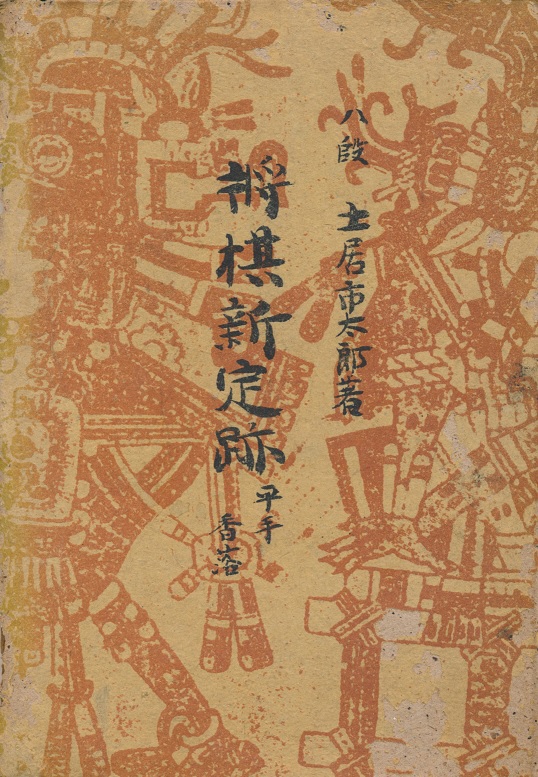 八段 土居市太郎著
将棋新定跡
平手
香落